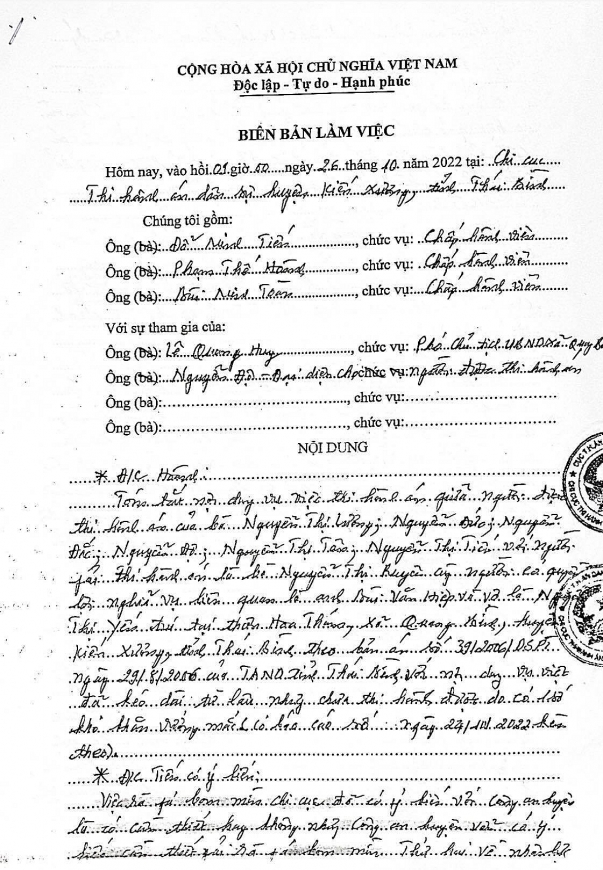 CỘNG HÒA XÃ HỘI CHỦ NGHĨA VIỆT NAM
Độc lập - Tự do - Hạnh phúc
BIÊN BẢN LÀM VIỆC
Hôm nay, vào hồi 01 giờ 00 ngày 26 tháng 10 năm 2022 tại: Chi cục
Thi hành án dân sự huyện Kiến Xương, tỉnh Thái Bình
Chúng tôi gồm:
Ông (bà): Đỗ Minh Tiến, chức vụ: Chấp hành viên
Ông (bà): Phạm Thế Hoành, chức vụ: Chấp hành viên
Ông (bà): Bùi Minh Toàn, chức vụ: Chấp hành viên
Với sự tham gia của:
Ông (bà): Lê Quang Huy, chức vụ: Phó Chủ tịch UBND xã
Ông (bà): Nguyễn Độ - Đại diện cho chức vụ: người được thi hành án
Ông (bà):, chức vụ:
Ông (bà):, chức vụ:
NỘI DUNG
* Đ/C Hoành:
Tóm tắt nội dung vụ việc thi hành án giữa người được
thi hành án của bà Nguyễn Thị Nguyễn Nguyễn
Nguyễn Độ; Nguyễn Thị Nguyễn Thị Tiến với người
phải thi hành án là bà Nguyễn Thị Quyên người có quyền
lợi nghĩa vụ liên quan là anh Bùi Văn Hiệp và vợ là Nguyễn
Thị Yên trú tại thôn Hoa Thám, xã Quang huyện
Kiến Xương, tỉnh Thái Bình theo bản án số 39/2006/DSPT
ngày 29/8/2006 của TAND tỉnh Thái Bình với nội dung vụ việc
đã kéo dài từ lâu nhưng chưa thi hành được do có
khó khăn vướng mắc (có báo cáo số ngày 24/10/2022 kèm
theo).
* Đ/C Tiến có ý kiến:
Việc rà phá bom mìn chi cục đã có ý kiến với Công an huyện
là có cần thiết hay không nhưng Công an huyện vẫn có ý
kiến cần thiết phải rà phá bom mìn. Thứ hai về nhân